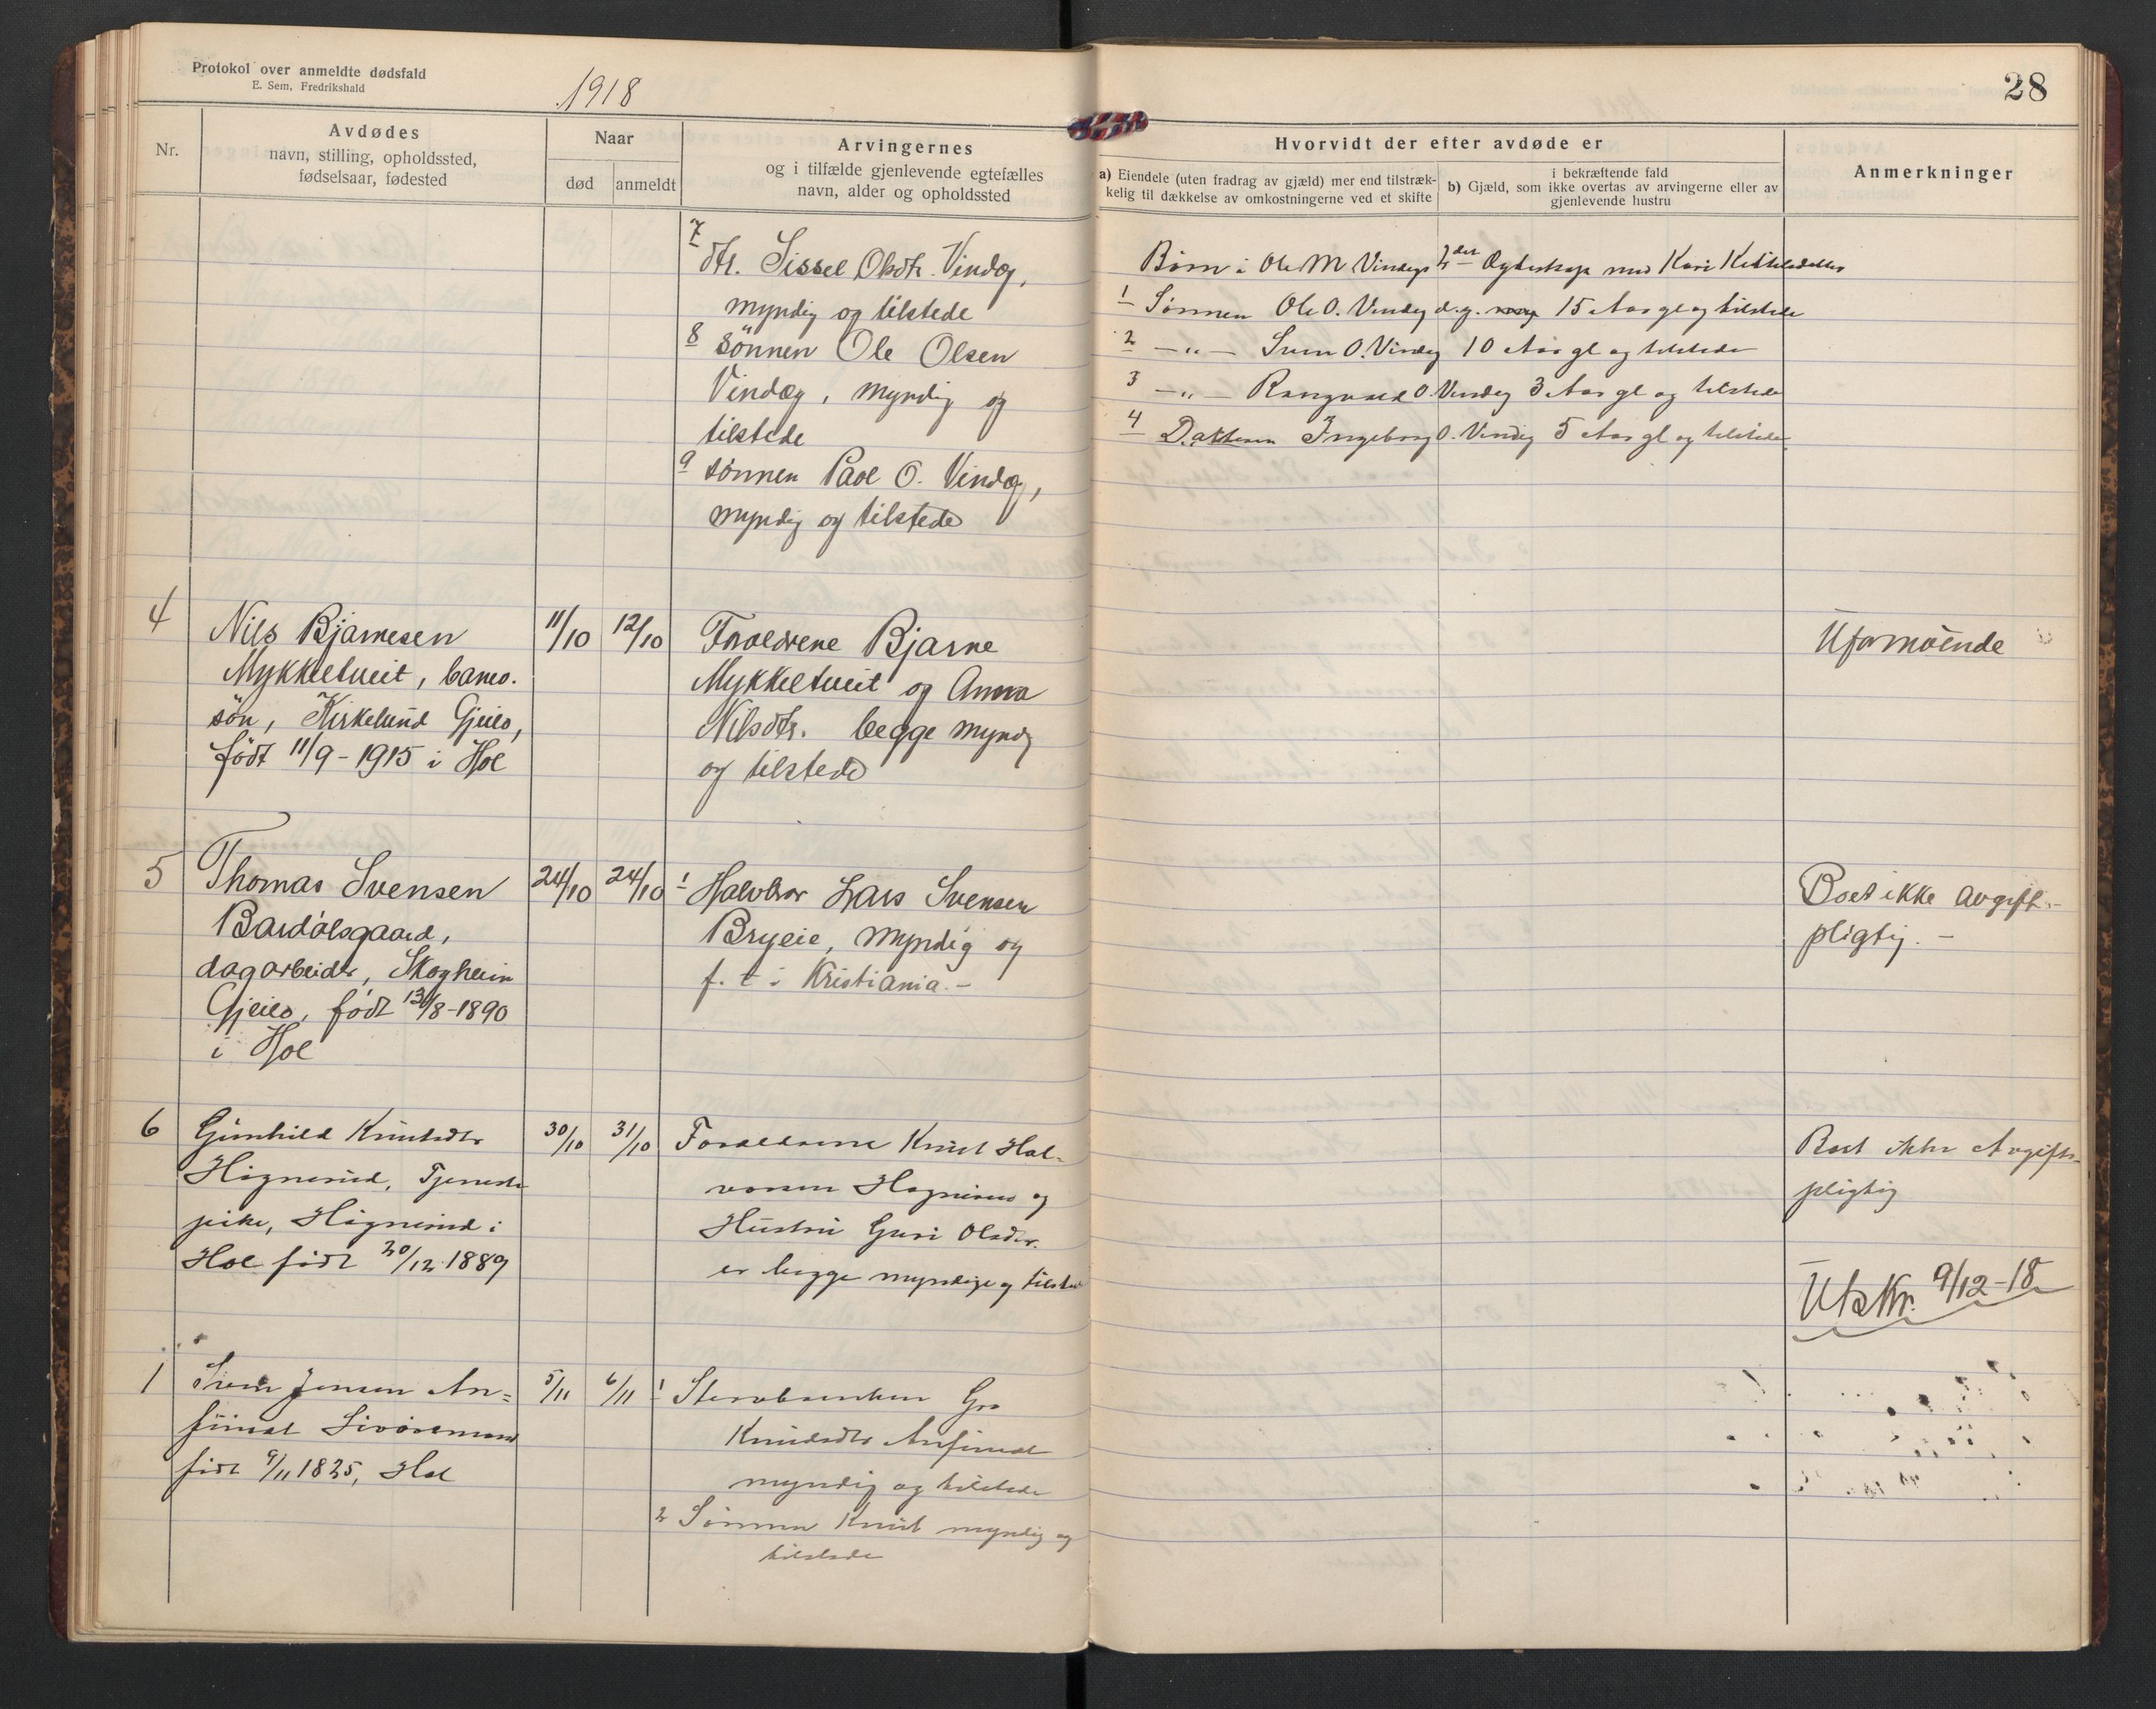 Protokol over anmeldte dødsfald
E. Sem, Fredrikshald
1918
Nr.
Avdødes
navn, stilling, opholdssted,
fødselsaar, fødested
Naar
død
anmeldt
Arvingernes
og i tilfælde gjenlevende egtefælles
navn, alder og opholdssted
7
dtr. Sissel Olsdtr. Vindeg,
myndig og tilstede
8 sönnen Ole Olsen
Vindeg, myndig og
tilstede
9 sönnen Paol O. Vindeg,
myndig og tilstede
4
Nils Bjarnesen
Mykkeltveit, barns.
sön, Kirkelund Gjeilo,
født 11/9-1915 i Hol
11/10
12/10
Foreldrene Bjarne
Mykkeltveit og Anna
Nilsdtr. begge myndg
og tilstede
5
Thomas Svensen
Bardølsgaard,
dagarbeider, Skogheim
Gjeilo, født 13/8-1890
i Hol
24/10
24/10
1 Halvbror Lars Svensen
Bryeie, myndig og
f. t. i Kristiania.-
6
Gunhild Knutsdtr
Högnerud, Tjeneste
pike, Högnerud i
Hol född 20/12 1889
30/10
31/10
Forældrene Knut Hal-
vorsen Hognerud og
Hustru Guri Olsdtr.
er begge myndige og tilstede
1
Svein Jensen An-
finset Livöremand
født 9/11 1835, Hol
5/11
6/11
1 Stervboenken Gro
Knudsdtr Anfinset
myndig og tilstede
2 Sönnen Knut myndig og
tilstede
28
Hvorvidt der efter avdøde er
a) Eiendele (uten fradrag av gjæld) mer end tilstræk-
kelig til dækkelse av omkostningerne ved et skifte
i bekræftende fald
b) Gjæld, som ikke overtas av arvingerne eller av
gjenlevende hustru
Anmerkninger
Börn i Ole M Vindegs 2det Egteskap med Kari Kittelsdatter
1 Sönnen Ole O. Vindeg d.y. 15 Aar gl og tilstede
2 -"- Svein O. Vindeg 10 Aar gl og tilstede
3 -"- Rangvald O. Vindeg 3 Aar gl og tilstede
4 Datteren Ingeborg O. Vindeg 5 Aar gl og tilstede
Uformöende
Boet ikke avgifts-
pligtig.-
Boet ikke Avgifts-
pligtig
Utskr. 9/12-18